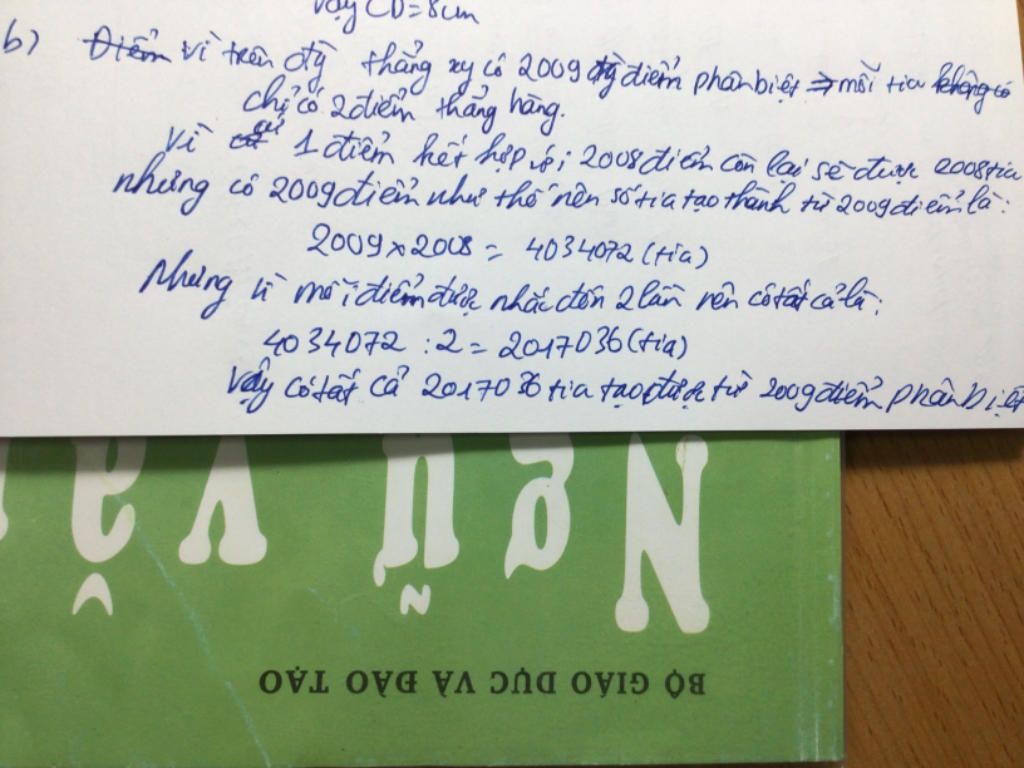 Vậy CD = 8cm
b) Điểm vì trên đg̀ thẳng xy có 2009 điểm phân biệt => mỗi tia không có
chỉ có 2 điểm thẳng hàng.
Vì cứ 1 điểm kết hợp với 2008 điểm còn lại sẽ được 2008 tia
nhưng có 2009 điểm như thế nên số tia tạo thành từ 2009 điểm là:
2009 x 2008 = 4034072 (tia)
Nhưng vì mỗi điểm được nhắc đến 2 lần nên có tất cả là:
4034072 : 2 = 2017036 (tia)
Vậy có tất cả 2017036 tia tạo được từ 2009 điểm phân biệt
NGỮ VĂ
BỘ GIÁO DỤC VÀ ĐÀO TẠO